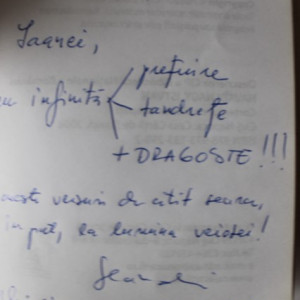 Ioanei,
prețuire
cu infinită
tandrețe
+ DRAGOSTE!!!
versuri de citit seara,
în pat, la lumina veiozei!